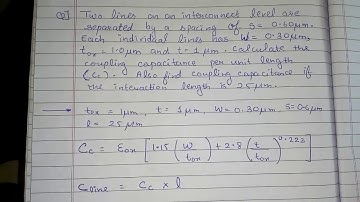 Q] Two lines on an interconnect level are
separated by a spacing of S = 0.60μm.
Each individual lines has W = 0.30μm,
tox = 1.0μm and t = 1μm. Calculate the
coupling capacitance per unit length
(Cc). Also find coupling capacitance if
the interaction length is 25μm.
→ tox = 1μm, t = 1μm, W = 0.30μm, S = 0.6μm
l = 25μm
Cc = Eox [1.15 (W/tox) + 2.8 (t/tox)^0.223]
Cline = Cc × l